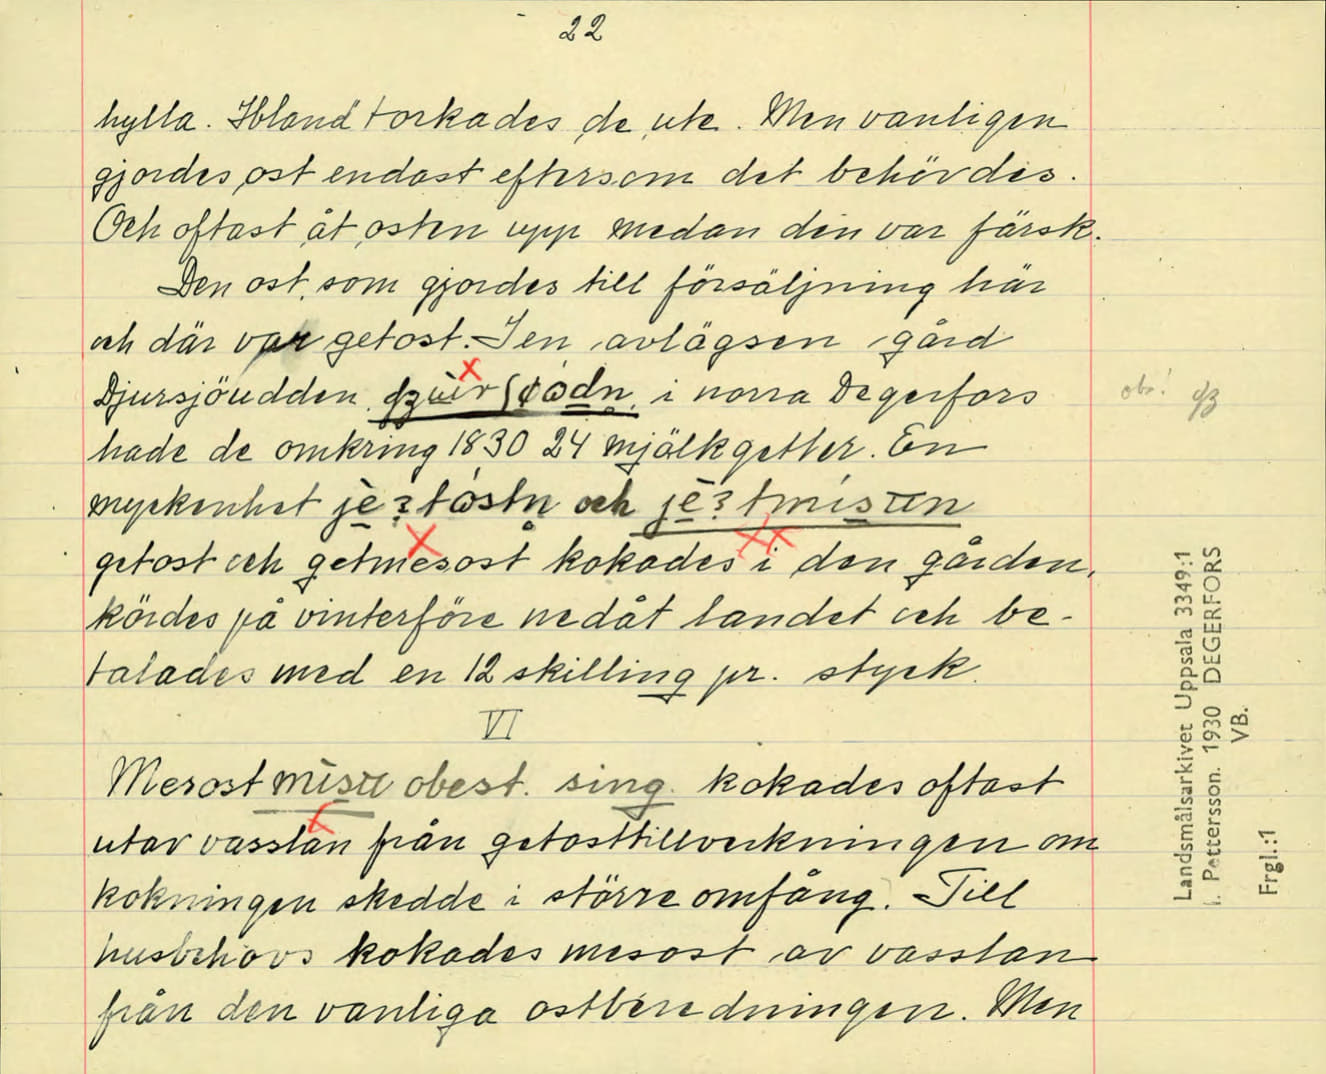 22
hylla. Ibland torkades de ute. Men vanligen
gjordes ost endast eftersom det behövdes.
Och oftast åt osten upp medan den var färsk.
Den ost, som gjordes till försäljning här
och där var getost. I en avlägsen gård
Djursjöudden i norra Degerfors
obs!
hade de omkring 1830 24 mjölkgetter. En
myckenhet och
getost och getmesost kokades i den gården,
kördes på vinterföre nedåt landet och be-
talades med en 12 skilling pr. styck.
VI
Mesost obest. sing. kokades oftast
utav vasslan från getosttillverkningen om
kokningen skedde i större omfång. Till
husbehovs kokades mesost av vasslan
från den vanliga ostberedningen. Men
Landsmålsarkivet Uppsala 3349:1
Pettersson. 1930 DEGERFORS
VB.
Frgl.:1